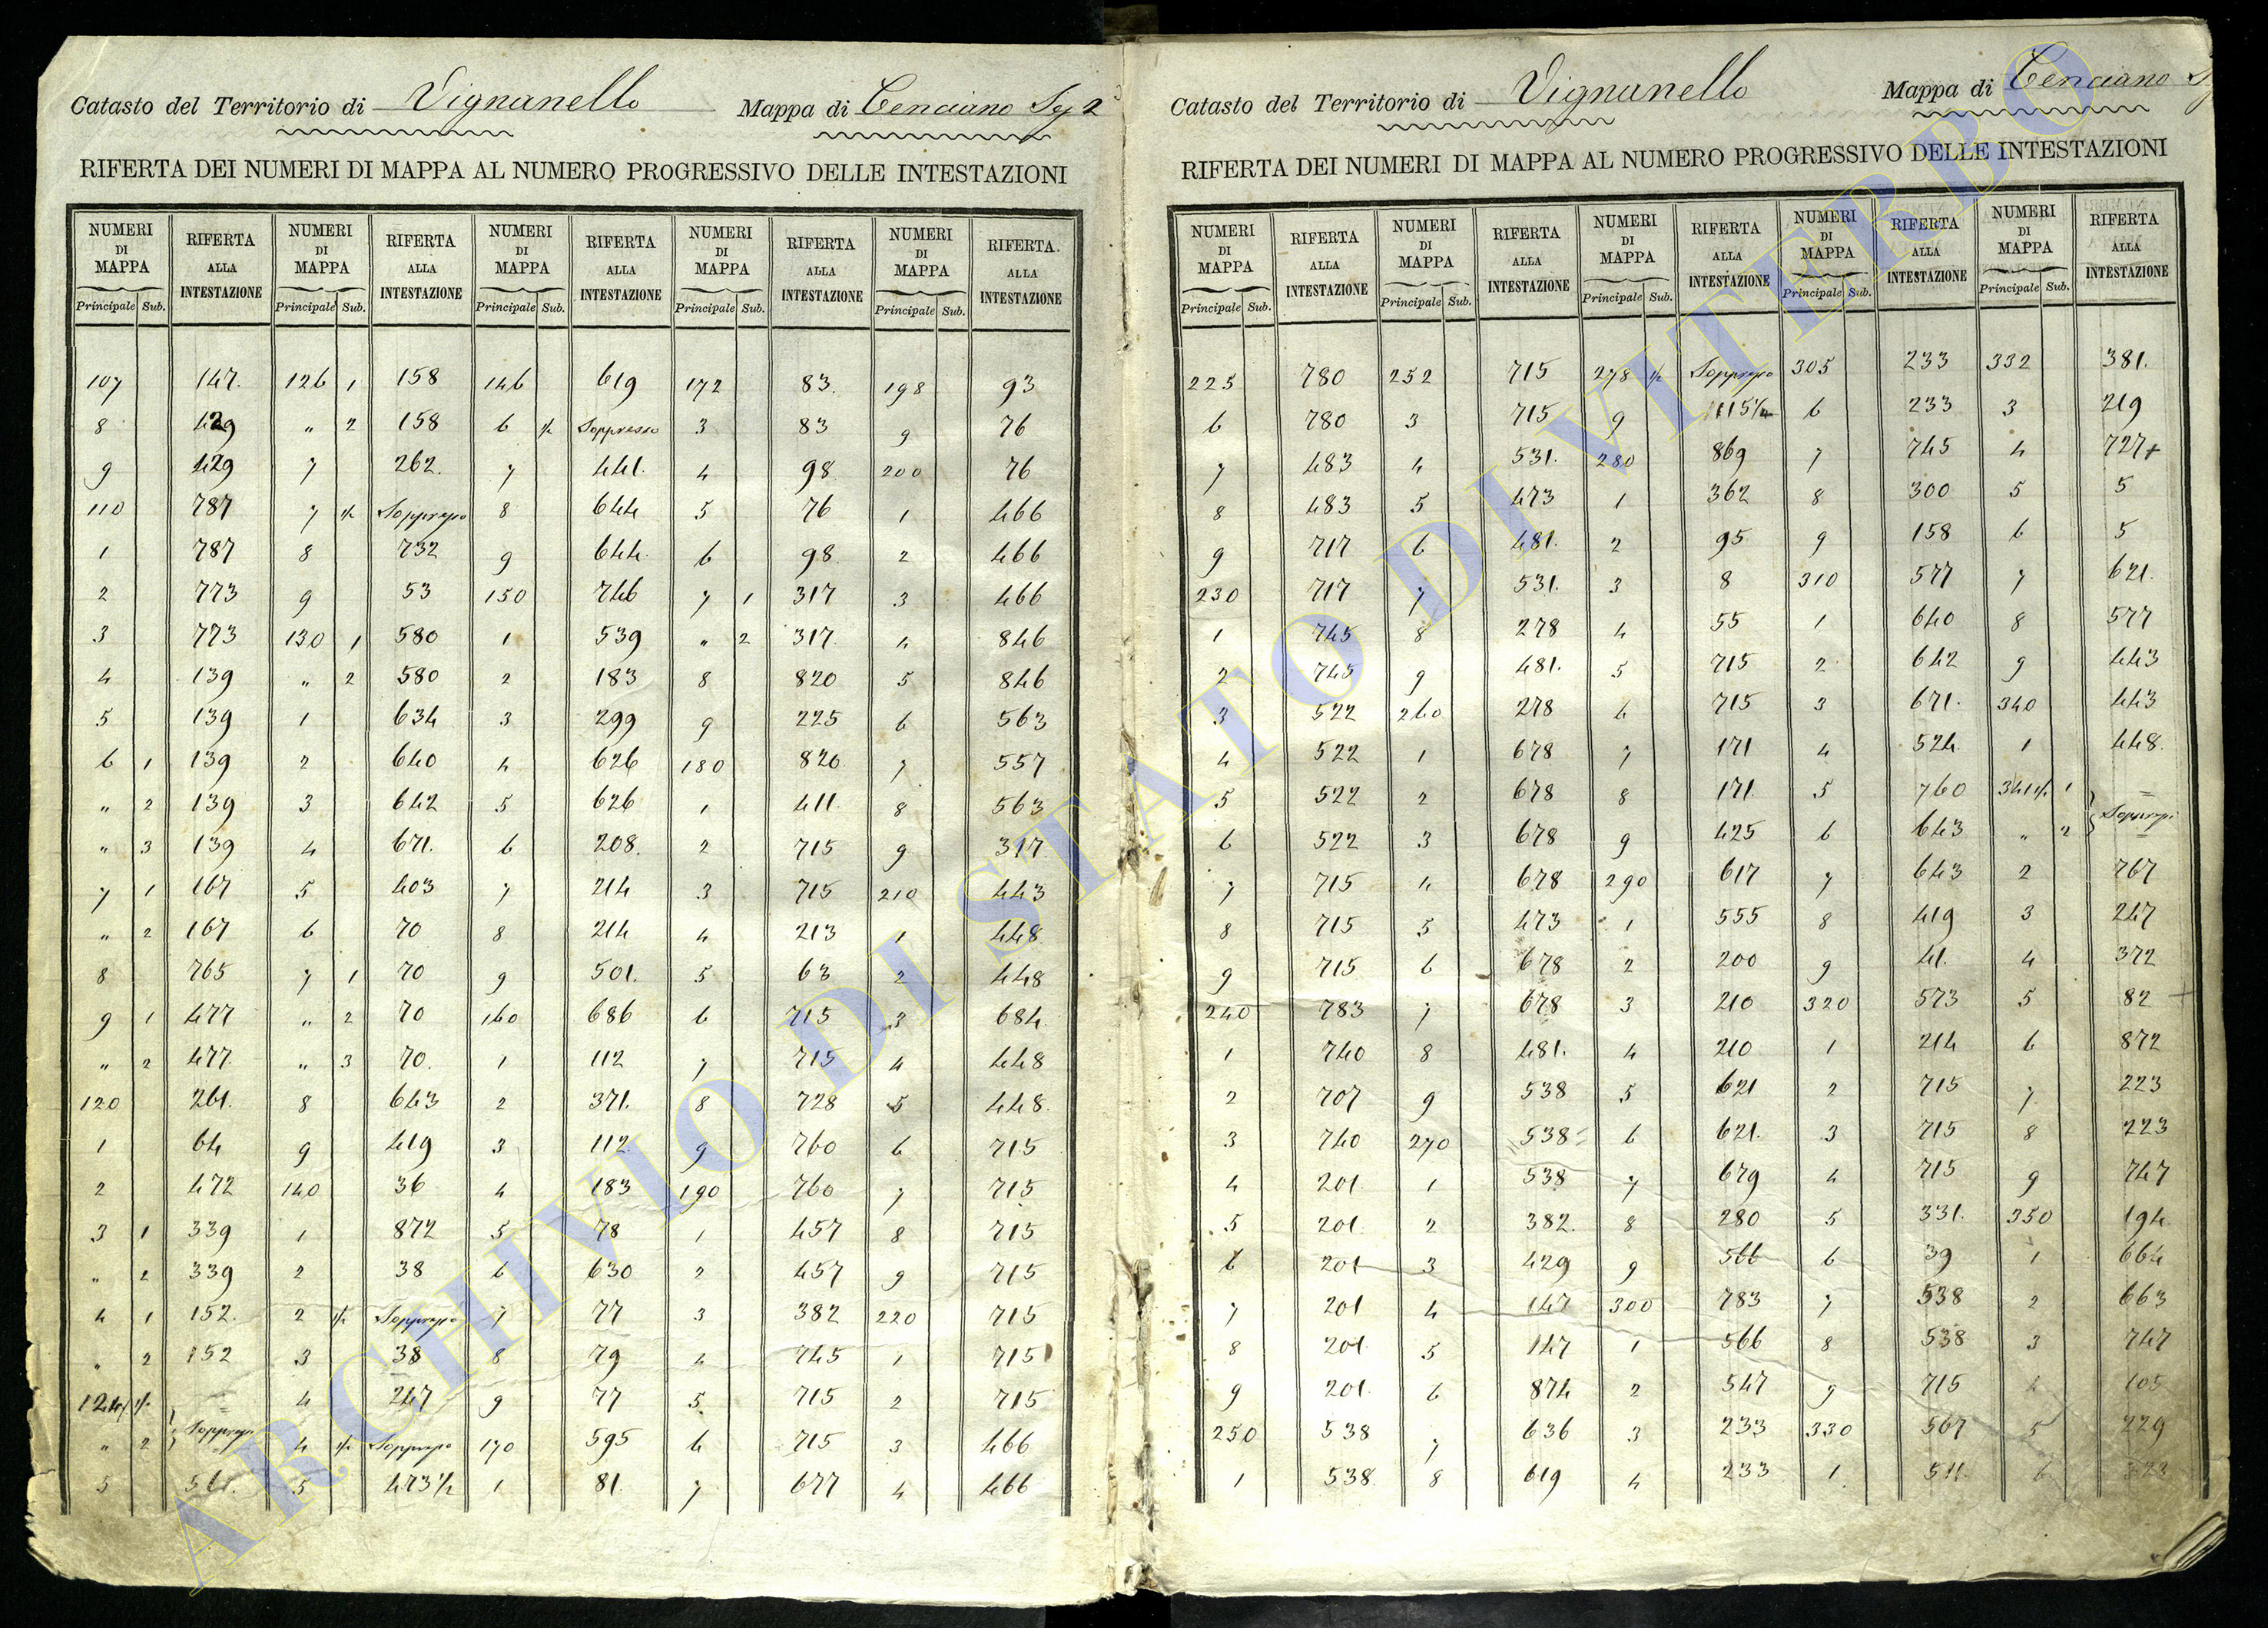 Catasto del Territorio di Vignanello Mappa di Cenciano Sez 2
RIFERTA DEI NUMERI DI MAPPA AL NUMERO PROGRESSIVO DELLE INTESTAZIONI
NUMERI DI MAPPA RIFERTA ALLA INTESTAZIONE NUMERI DI MAPPA RIFERTA ALLA INTESTAZIONE NUMERI DI MAPPA RIFERTA ALLA INTESTAZIONE NUMERI DI MAPPA RIFERTA ALLA INTESTAZIONE NUMERI DI MAPPA RIFERTA ALLA INTESTAZIONE
Principale Sub. Principale Sub. Principale Sub. Principale Sub. Principale Sub.
107 147. 126 1 158 146 619 172 83. 198 93
8 429 " 2 158 6 ½ Soppresso 3 83 9 76
9 429 7 262. 7 441. 4 98 200 76
110 787 7 ½ Soppresso 8 644 5 76 1 466
1 787 8 732 9 644. 6 98. 2 466
2 773 9 53 150 746 7 1 317 3 466
3 773 130 1 580 1 539 " 2 317. 4 846
4 139 " 2 580 2 183 8 820 5 846
5 139 1 634 3 299 9 225 6 563
6 1 139 2 640 4 626 180 820 7 557
" 2 139 3 642 5 626 1 411. 8 563
" 3 139 4 671. 6 208. 2 715 9 317.
7 1 167 5 403 7 214 3 715 210 443
" 2 167 6 70 8 214 4 213 1 448
8 765 7 1 70 9 501. 5 63 2 448
9 1 477 " 2 70 160 686 6 715 3 684
" 2 477. " 3 70. 1 112 7 715 4 448
120 261. 8 643 2 371. 8 728 5 448.
1 64 9 419 3 112. 9 760 6 715
2 472 140 36 4 183 190 760 7 715
3 1 339 1 872 5 78 1 457 8 715
" 2 339 2 38 6 630 2 457 9 715
4 1 152. 2 ½ Soppresso 7 77 3 382 220 715
" 2 152 3 38 8 79 4 745 1 715
124½ 4 247 9 77 5 715 2 715
" 2 Soppressi 4 ½ Soppresso 170 595 6 715 3 466
5 561. 5 473½ 1 81. 7 677 4 466
Catasto del Territorio di Vignanello Mappa di Cenciano
RIFERTA DEI NUMERI DI MAPPA AL NUMERO PROGRESSIVO DELLE INTESTAZIONI
NUMERI DI MAPPA RIFERTA ALLA INTESTAZIONE NUMERI DI MAPPA RIFERTA ALLA INTESTAZIONE NUMERI DI MAPPA RIFERTA ALLA INTESTAZIONE NUMERI DI MAPPA RIFERTA ALLA INTESTAZIONE NUMERI DI MAPPA RIFERTA ALLA INTESTAZIONE
Principale Sub. Principale Sub. Principale Sub. Principale Sub. Principale Sub.
225 780 252 715 278 ½ Soppresso 305 233 332 381.
6 780 3 715 9 6 233 3 219
7 483 4 531. 280 869 7 745 4 727+
8 483 5 473 1 362 8 300 5 5
9 717 6 481. 2 95 9 158 6 5
230 717 7 531. 3 8 310 577 7 621.
1 745 8 278 4 55 1 640 8 577
2 745 9 481. 5 715 2 642 9 443
3 522 260 278 6 715 3 671. 340 443
4 522 1 678 7 171 4 524. 1 448.
5 522 2 678 8 171. 5 760 341½ 1
6 522 3 678 9 425 6 643 " 2 Soppressi
7 715 4 678 290 617 7 643 2 767
8 715 5 473 1 555 8 419 3 247
9 715 6 678 2 200 9 41. 4 372
240 783 7 678 3 210 320 573 5 82
1 740 8 481. 4 210 1 214 6 872
2 707 9 538 5 621 2 715 7 223
3 740 270 538 6 621. 3 715 8 223
4 201. 1 538 7 679 4 715 9 747
5 201. 2 382. 8 280 5 331. 350 194.
6 201 3 429 9 566 6 39 1 664
7 201 4 147 300 783 7 538 2 663
8 201. 5 147 1 566 8 538 3 747
9 201. 6 874 2 547 9 715 4 105
250 538 7 636 3 233 330 567 5 229
1 538. 8 619 4 233 1. 511. 6
ARCHIVIO DI STATO DI VITERBO